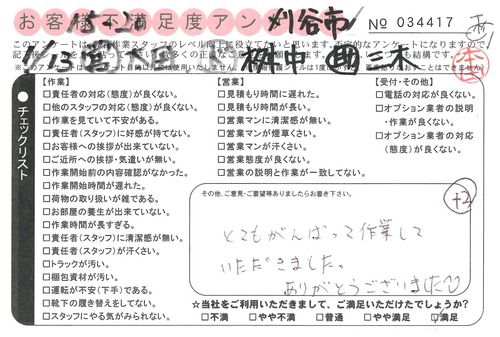 お客様不満足度アン
15-20 刈谷市
No 034417
このアンケートは、
【作業】
□責任者の対応(態度)が良くない。
□他のスタッフの対応(態度)が良くない。
□作業を見ていて不安がある。
□責任者(スタッフ)に好感が持てない。
□お客様への挨拶が出来ていない。
□ご近所への挨拶・気遣いが無い。
□作業開始前の内容確認がなかった。
□作業開始時間が遅れた。
□荷物の取り扱いが雑である。
□お部屋の養生が出来ていない。
□作業時間が長すぎる。
□責任者(スタッフ)に清潔感が無い。
□責任者(スタッフ)が汗くさい。
□トラックが汚い。
□梱包資材が汚い。
□運転が不安(下手)である。
□靴下の履き替えをしてない。
□スタッフにやる気がみられない。
【営業】
□見積もり時間に遅れた。
□見積もり時間が長い。
□営業マンに清潔感が無い。
□営業マンが煙草くさい。
□営業マンが汗くさい。
□営業態度が良くない。
□営業の説明と作業が一致してない。
【受付・その他】
□電話の対応が良くない。
□オプション業者の説明
・作業が良くない。
□オプション業者の対応
(態度)が良くない。
チェックリスト
その他、ご意見・ご要望等ありましたらお書き下さい。
+2
とてもがんばって作業して
いただきました。
ありがとうございました♡
☆当社をご利用いただきまして、ご満足いただけたでしょうか?
□不満 □やや不満 □普通 □やや満足 □満足